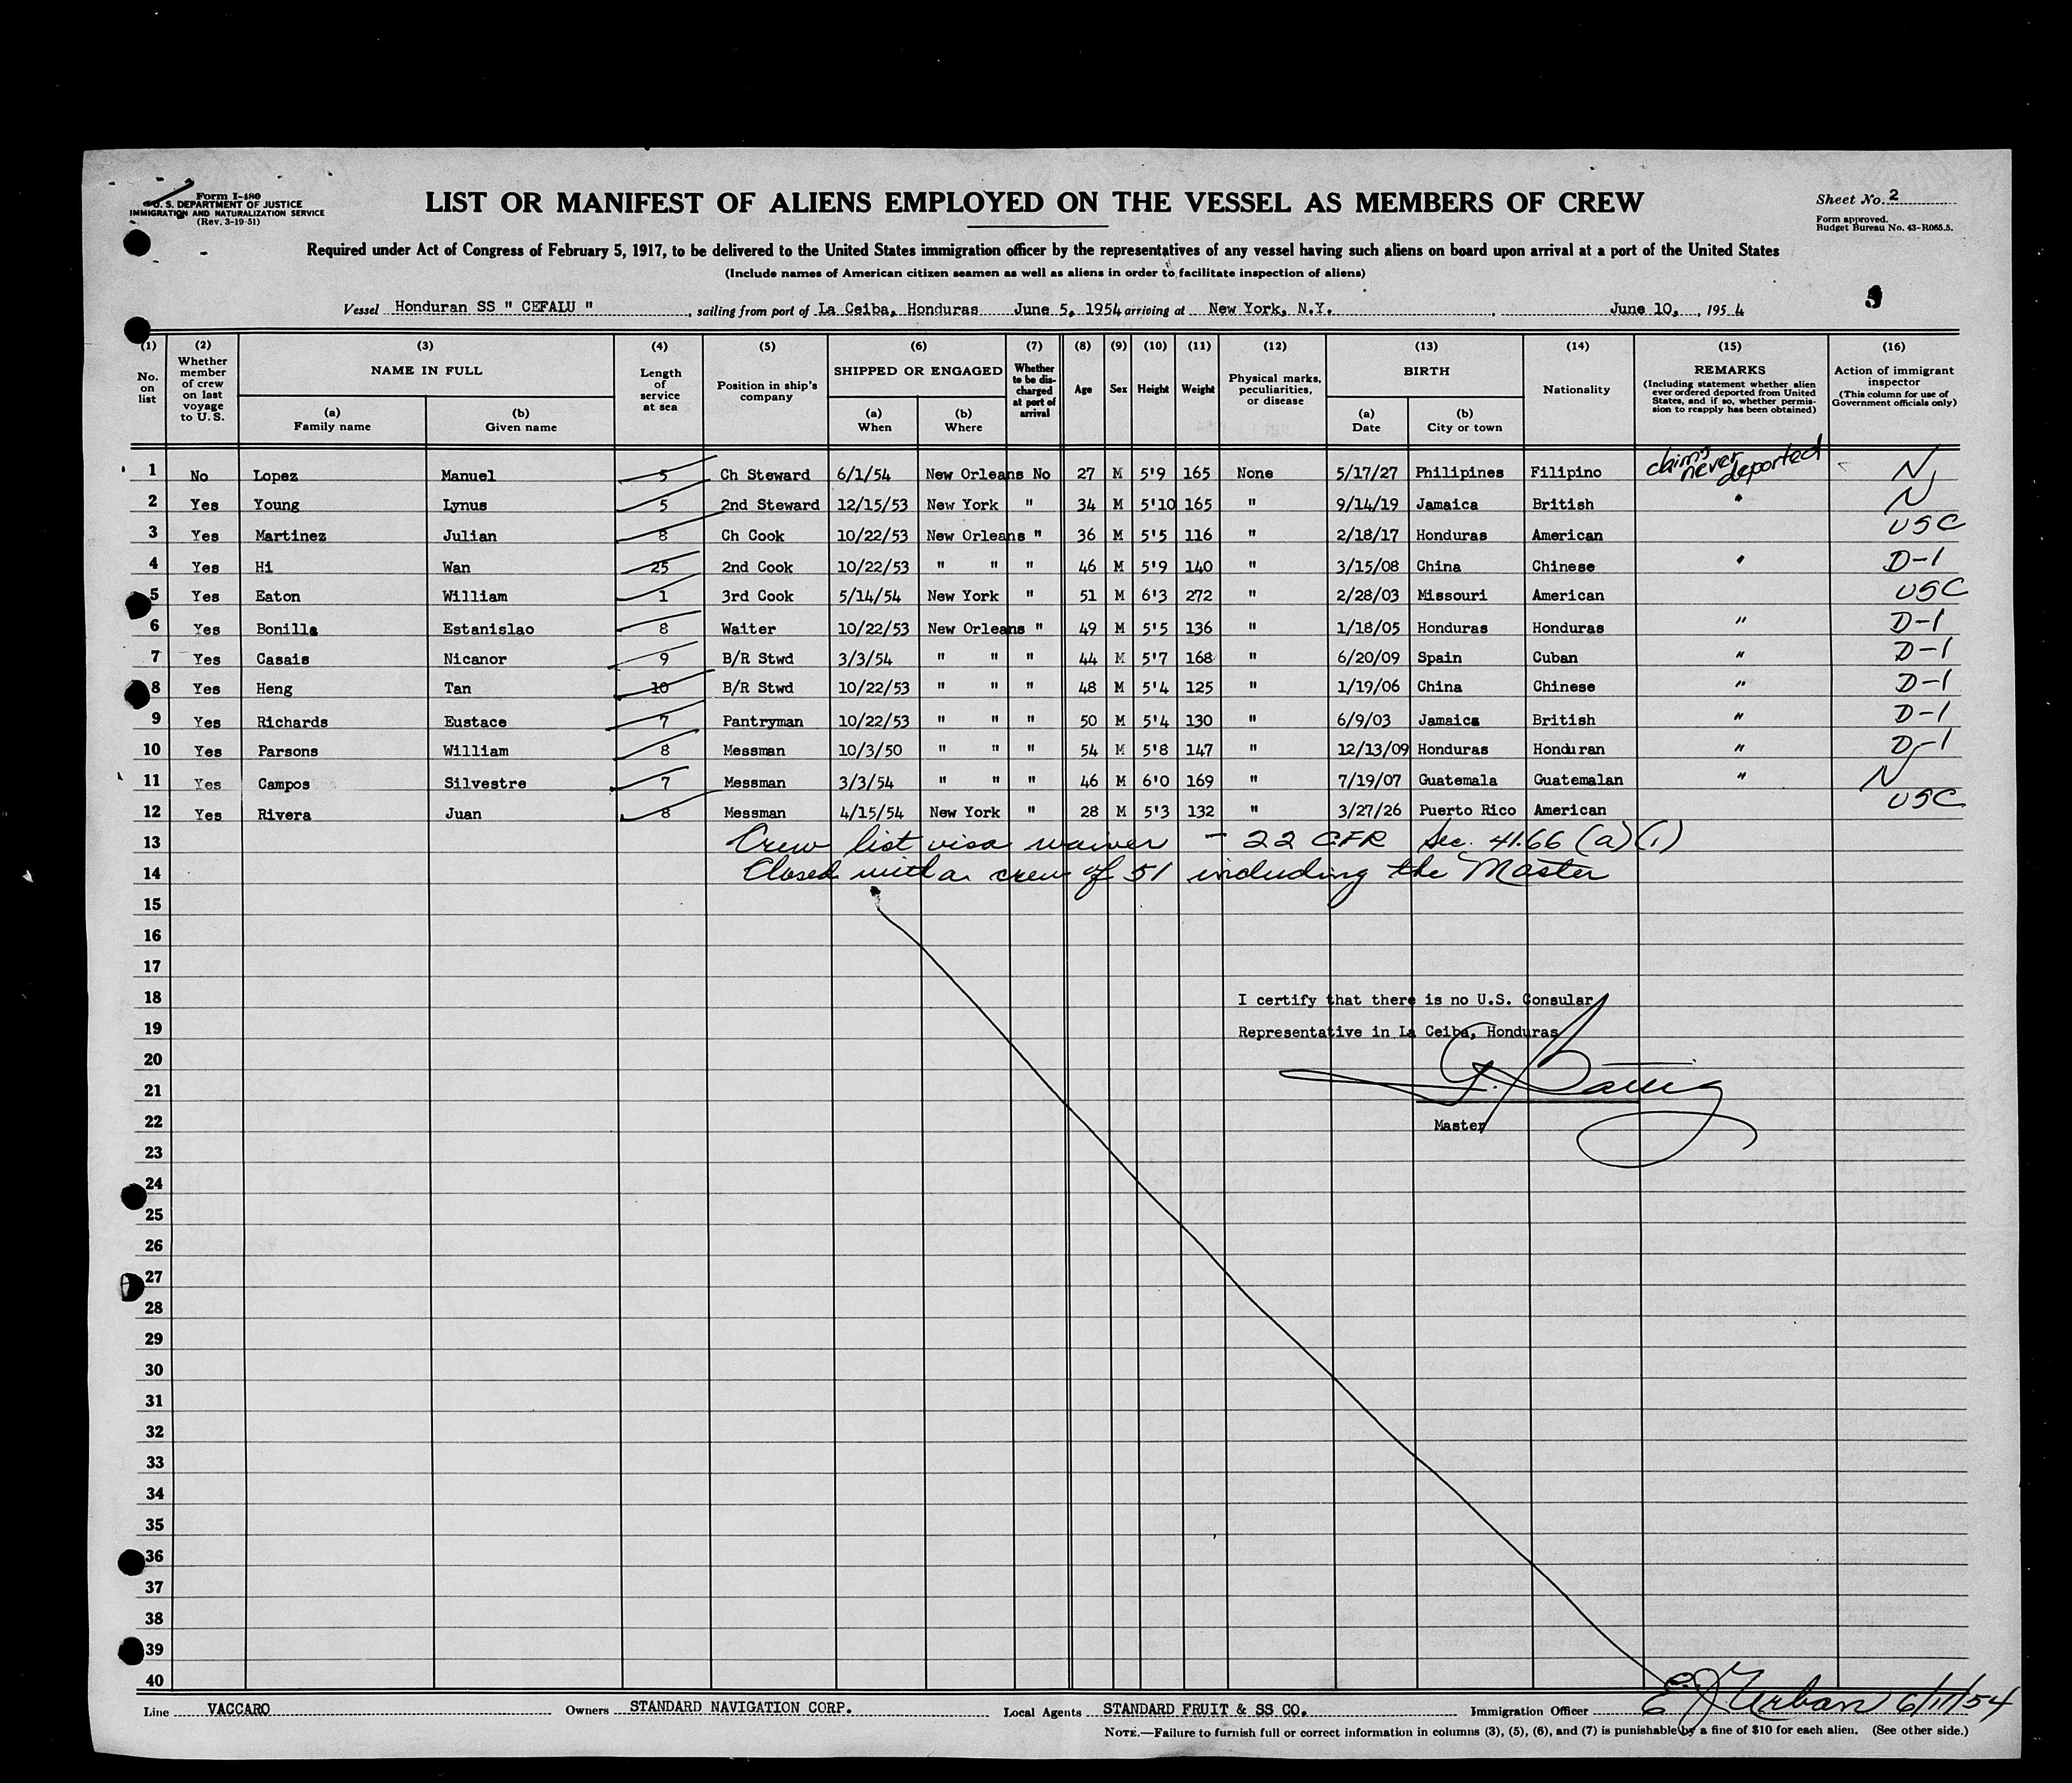 Form I-480
U. S. DEPARTMENT OF JUSTICE
IMMIGRATION AND NATURALIZATION SERVICE
(Rev. 3-19-51)
LIST OR MANIFEST OF ALIENS EMPLOYED ON THE VESSEL AS MEMBERS OF CREW
Sheet No. 2
Form approved.
Budget Bureau No. 43-R065.5.
Required under Act of Congress of February 5, 1917, to be delivered to the United States immigration officer by the representatives of any vessel having such aliens on board upon arrival at a port of the United States
(Include names of American citizen seamen as well as aliens in order to facilitate inspection of aliens)
Vessel Honduran SS " CEFALU ", sailing from port of La Ceiba, Honduras June 5, 1954 arriving at New York, N.Y., June 10, , 1954
(1) No. on list
(2) Whether member of crew on last voyage to U. S.
(3) NAME IN FULL (a) Family name (b) Given name
(4) Length of service at sea
(5) Position in ship's company
(6) SHIPPED OR ENGAGED (a) When (b) Where
(7) Whether to be discharged at port of arrival
(8) Age
(9) Sex
(10) Height
(11) Weight
(12) Physical marks, peculiarities, or disease
(13) BIRTH (a) Date (b) City or town
(14) Nationality
(15) REMARKS (Including statement whether alien ever ordered deported from United States, and if so, whether permission to reapply has been obtained)
(16) Action of immigrant inspector (This column for use of Government officials only)
1 No Lopez Manuel 5 Ch Steward 6/1/54 New Orleans No 27 M 5'9 165 None 5/17/27 Philipines Filipino claims never deported N
2 Yes Young Lynus 5 2nd Steward 12/15/53 New York " 34 M 5'10 165 " 9/14/19 Jamaica British " N
3 Yes Martinez Julian 8 Ch Cook 10/22/53 New Orleans " 36 M 5'5 116 " 2/18/17 Honduras American USC
4 Yes Hi Wan 25 2nd Cook 10/22/53 " " " 46 M 5'9 140 " 3/15/08 China Chinese " D-1
5 Yes Eaton William 1 3rd Cook 5/14/54 New York " 51 M 6'3 272 " 2/28/03 Missouri American USC
6 Yes Bonilla Estanislao 8 Waiter 10/22/53 New Orleans " 49 M 5'5 136 " 1/18/05 Honduras Honduras " D-1
7 Yes Casais Nicanor 9 B/R Stwd 3/3/54 " " " 44 M 5'7 168 " 6/20/09 Spain Cuban " D-1
8 Yes Heng Tan 10 B/R Stwd 10/22/53 " " " 48 M 5'4 125 " 1/19/06 China Chinese " D-1
9 Yes Richards Eustace 7 Pantryman 10/22/53 " " " 50 M 5'4 130 " 6/9/03 Jamaica British " D-1
10 Yes Parsons William 8 Messman 10/3/50 " " " 54 M 5'8 147 " 12/13/09 Honduras Honduran " D-1
11 Yes Campos Silvestre 7 Messman 3/3/54 " " " 46 M 6'0 169 " 7/19/07 Guatemala Guatemalan " N
12 Yes Rivera Juan 8 Messman 4/15/54 New York " 28 M 5'3 132 " 3/27/26 Puerto Rico American USC
13 Crew list visa waiver - 22 CFR Sec. 41.66 (a)(1)
14 Closed with a crew of 51 including the Master
15
16
17
18 I certify that there is no U.S. Consular
19 Representative in La Ceiba, Honduras
20
21
22 Master
23
24
25
26
27
28
29
30
31
32
33
34
35
36
37
38
39
40
Line VACCARO Owners STANDARD NAVIGATION CORP. Local Agents STANDARD FRUIT & SS CO. Immigration Officer E. J. Urban 6/11/54
NOTE.—Failure to furnish full or correct information in columns (3), (5), (6), and (7) is punishable by a fine of $10 for each alien. (See other side.)